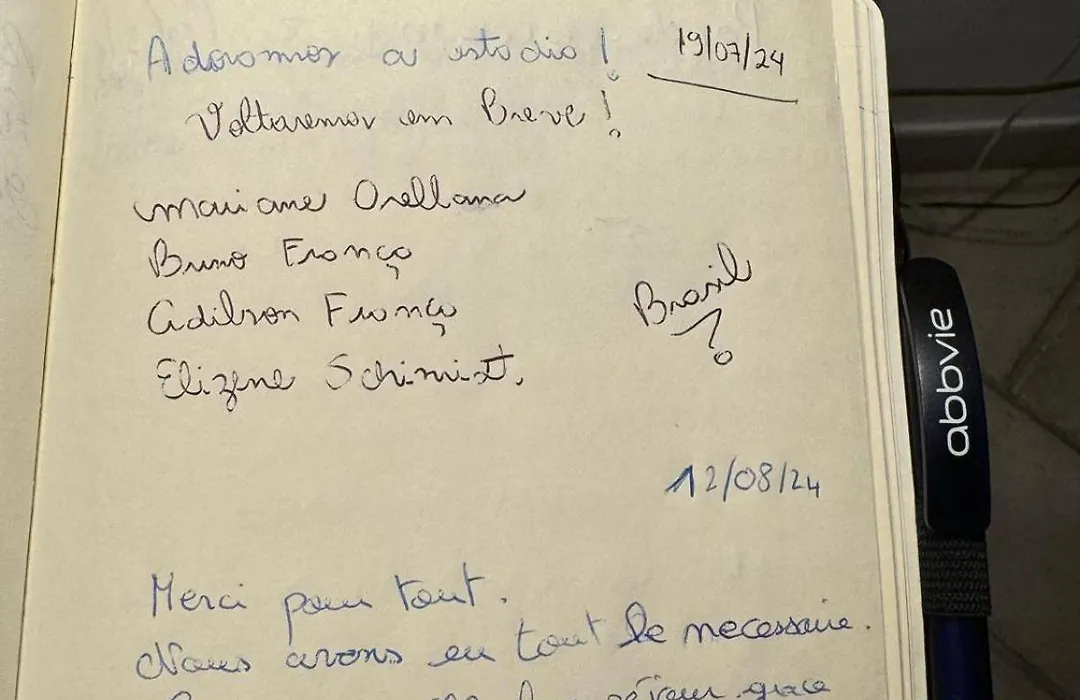 Adoramos a estadio! 19/07/24
Voltaremos em Breve!
Mariane Orellana
Bruno França
Adilson França
Brasil
Elizene Schimidt.
abbvie
12/08/24
Merci pour tout.
Nous avons eu tout le necessaire.
séjour grace